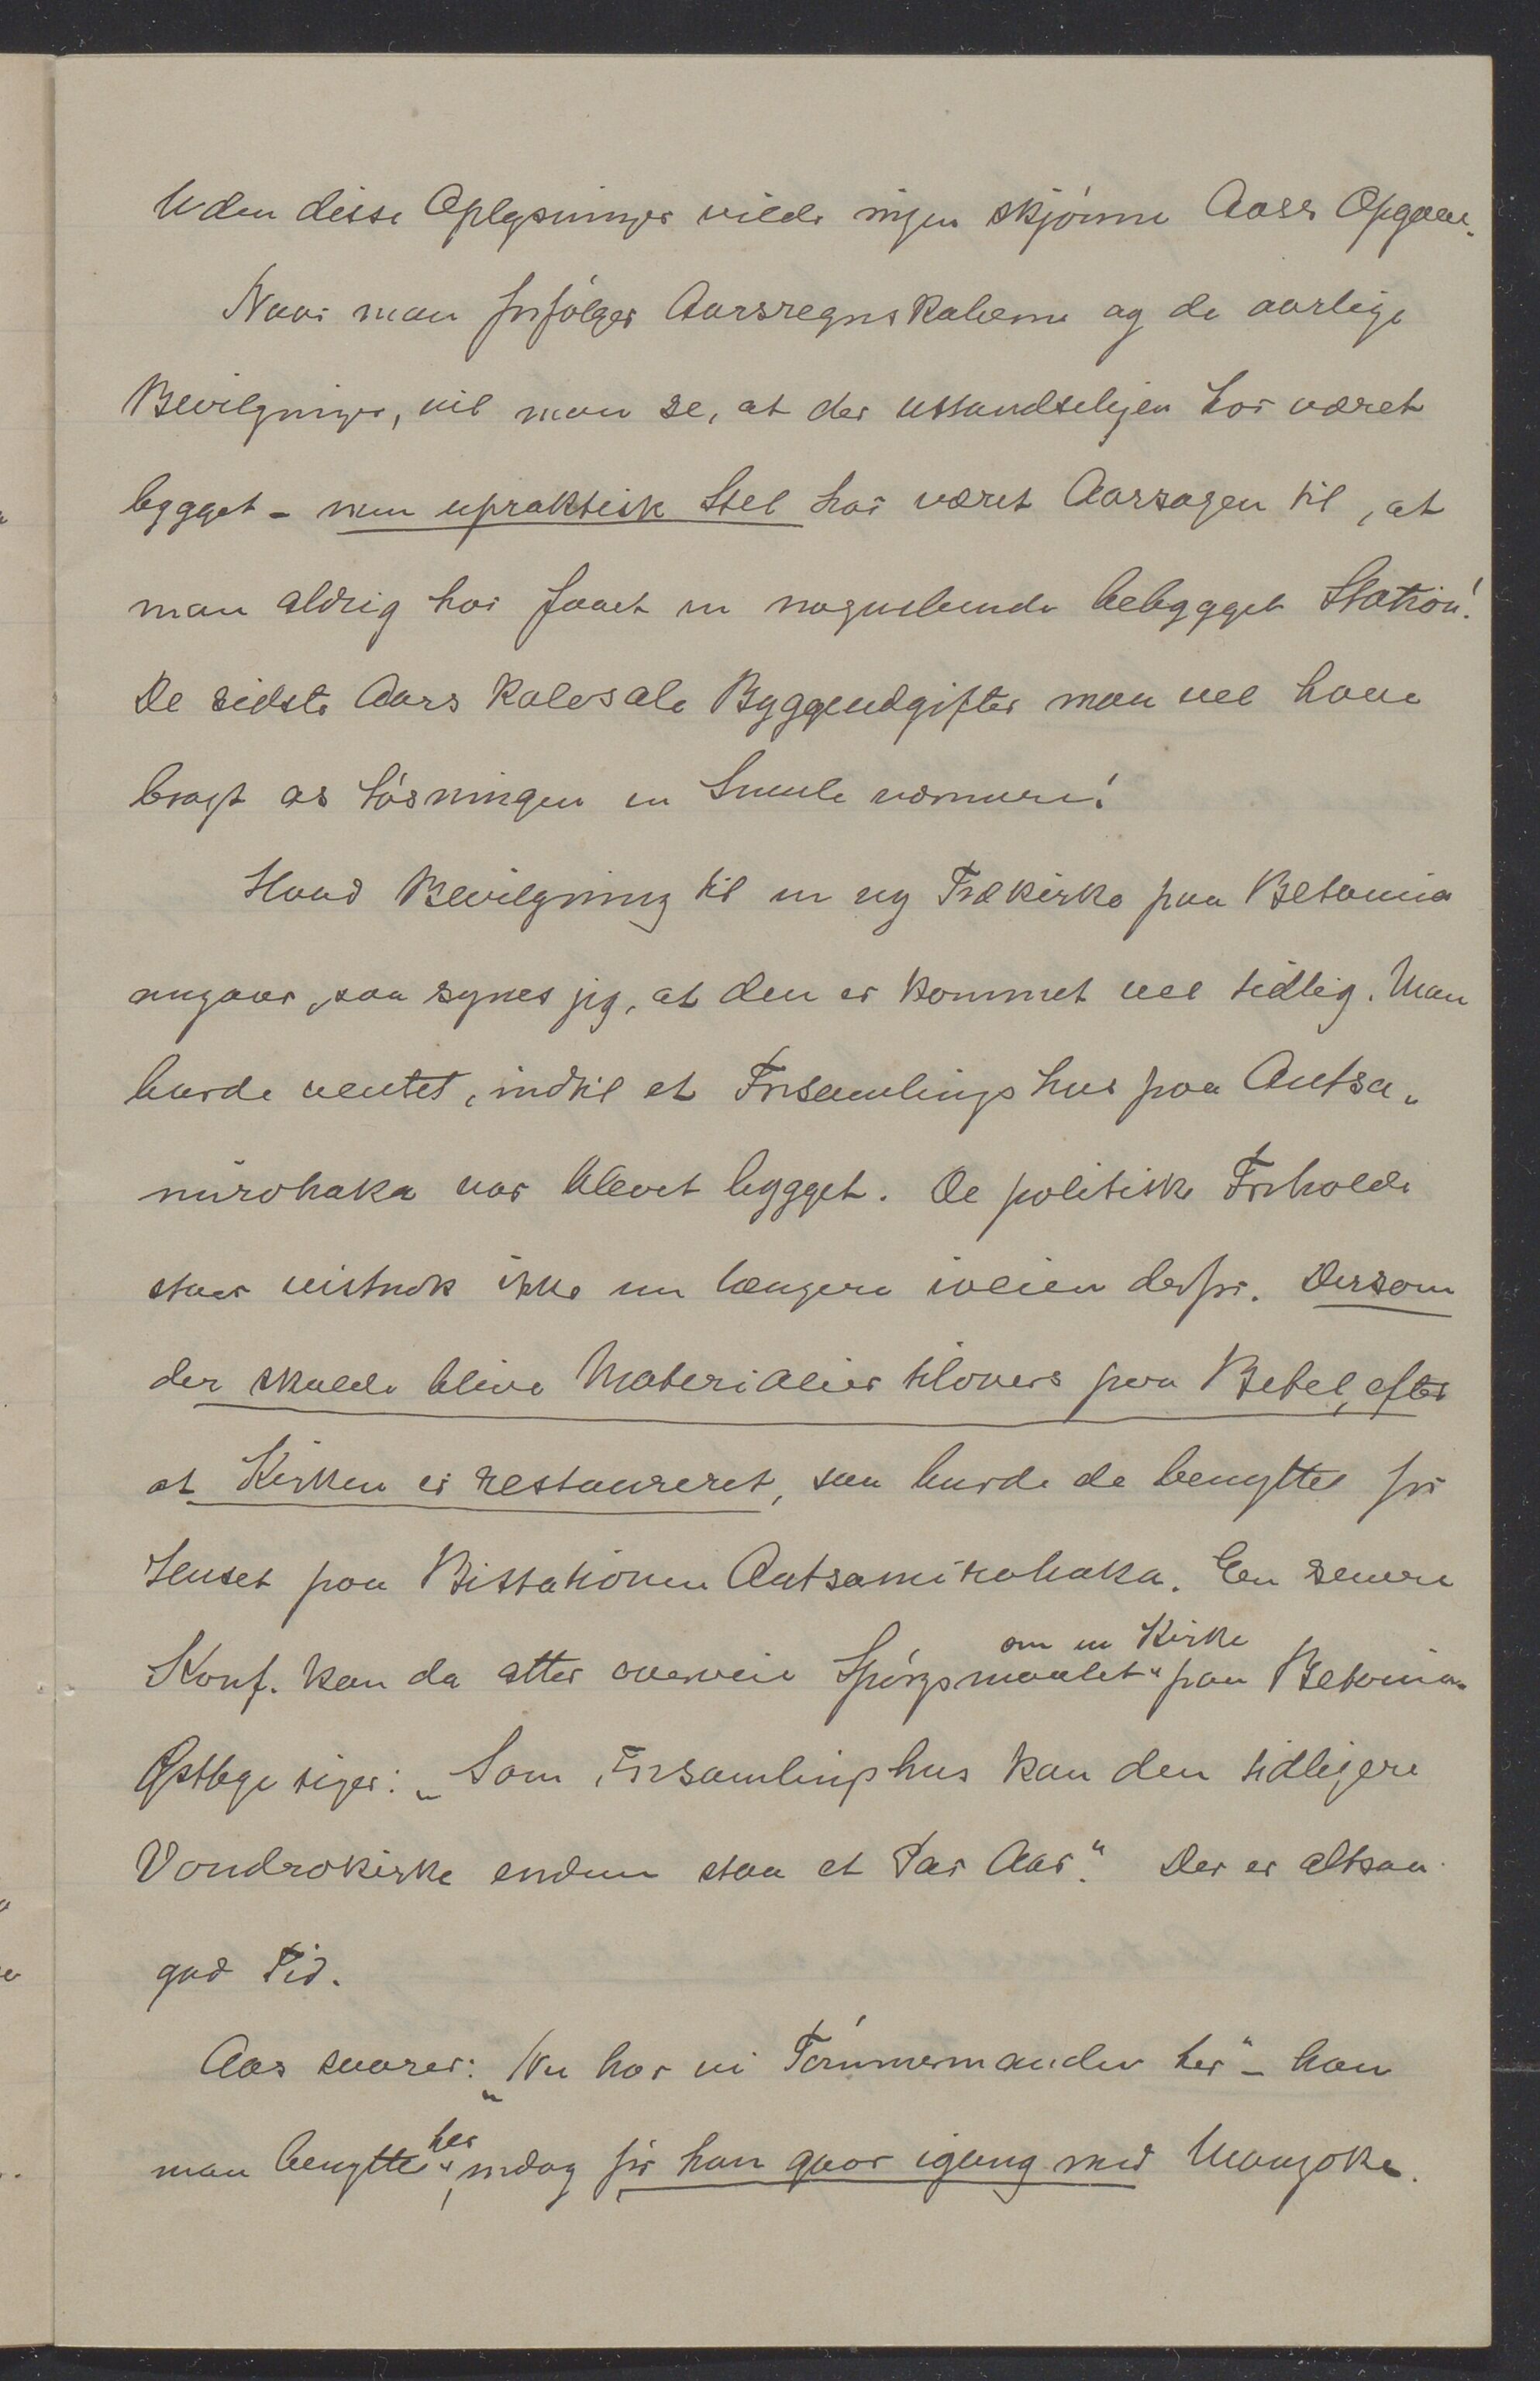 Uden disse Oplysninger vilde ingen skjønne Aas's Opgave.
Naar man forfølger Aarsregnskaberne og de aarlige
Bevilgninger, vil man se, at der ustandseligen har været
bygget - men upraktisk Stel har været Aarsagen til, at
man aldrig har faaet en nogenlunde bebygget Station!
De sidste Aars kolosale Byggeudgifter maa vel have
bragt os Løsningen en Smule nærmere!
Hvad Bevilgning til en ny Trækirke paa Betania
angaar, saa synes jeg, at den er kommet vel tidlig. Man
burde ventet, indtil et Forsamlingshus paa Antsa-
mirohaka var blevet bygget. De politiske Forholde
staar vistnok ikke nu længere iveien derfor. Dersom
der skulde blive Materialier tilovers paa Betel, efter
at Kirken er restaureret, saa burde de benyttes for
Huset paa Bistationen Antsamirohaka. En senere
Konf. kan da atter overveie Spørgsmaalet om en Kirke paa Betania.
Østbye siger: "Som Forsamlingshus kan den tidligere
Vondrokirke endnu staa et Par Aar." Der er altsaa
god Tid.
Aas svarer: "Nu har vi Tømmermanden her" - han
maa benyttes her, endog før han gaar igang med Manzoke.